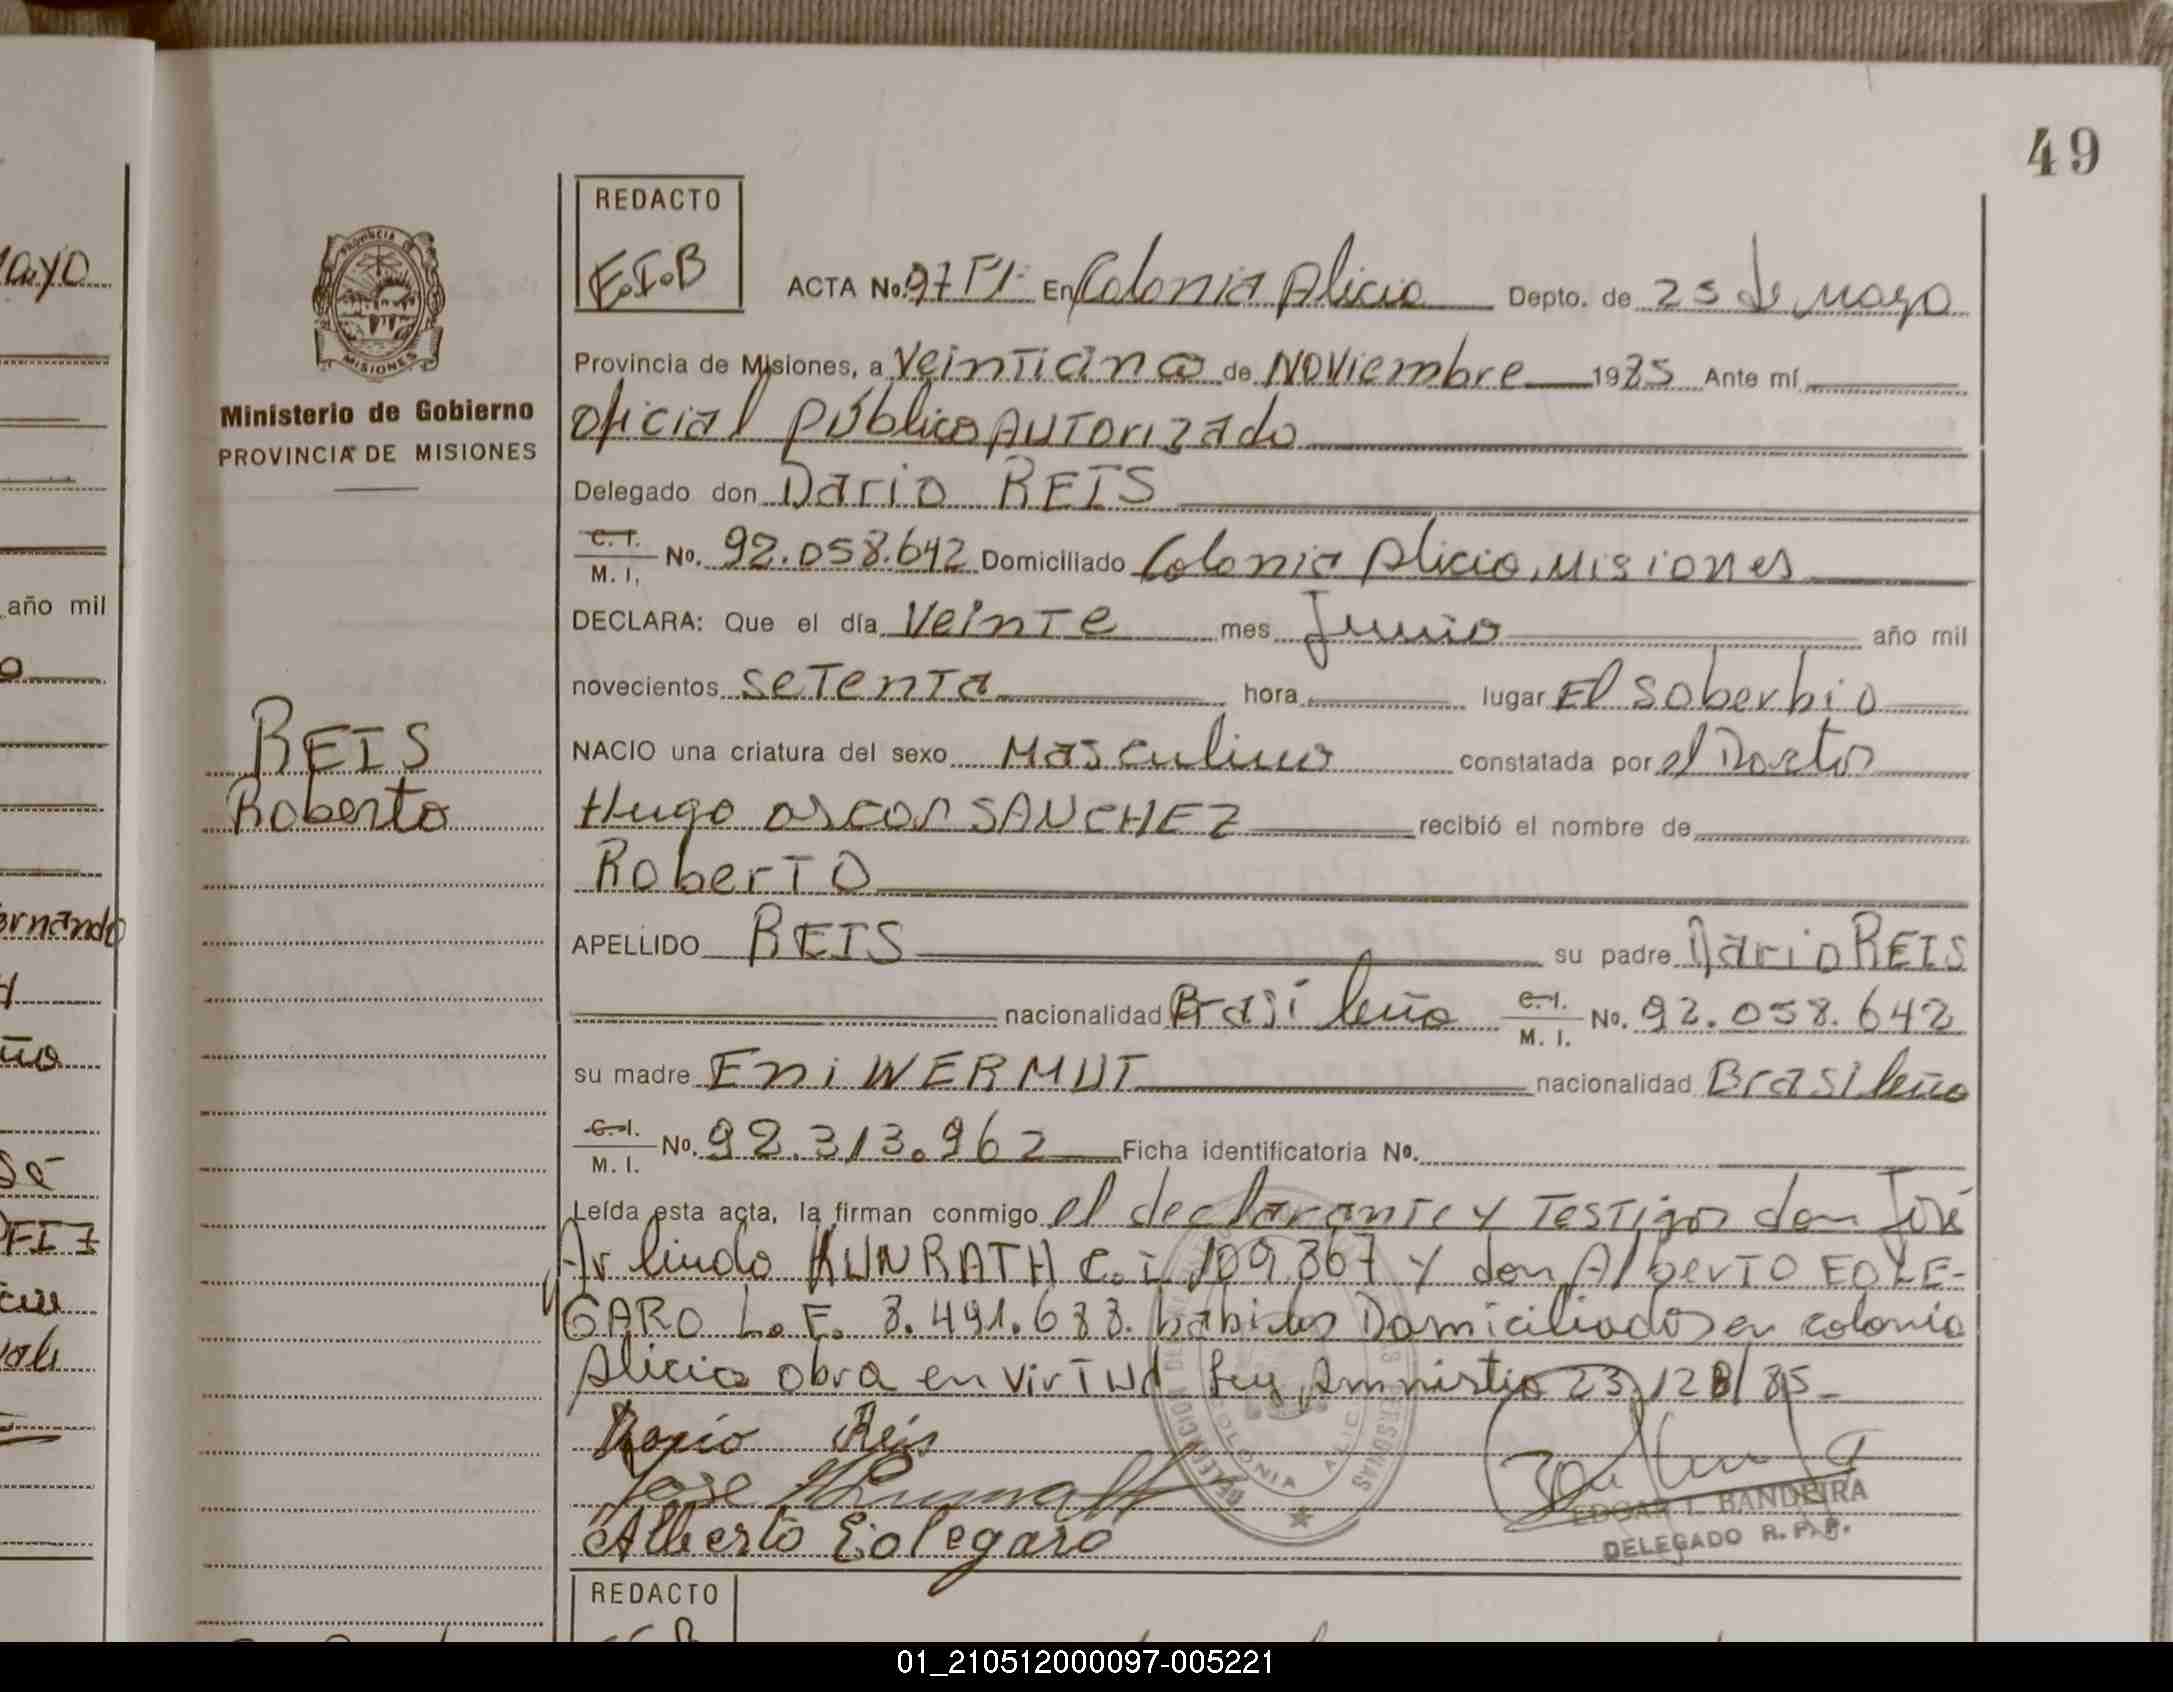 49
REDACTO
E.I.B
ACTA No. 97 En Colonia Alicia Depto. de 25 de Mayo
PROVINCIA DE
MISIONES
Provincia de Misiones, a Veinticinco de Noviembre 1985 Ante mí
Ministerio de Gobierno
PROVINCIA DE MISIONES
oficial Público Autorizado
Delegado don Dario REIS
C. I.
M. I. No. 92.058.642 Domiciliado Colonia Alicia, Misiones
DECLARA: Que el día Veinte mes Junio año mil
novecientos setenta hora lugar El soberbio
REIS
Roberto
NACIO una criatura del sexo Masculino constatada por el Doctor
Hugo oscar SANCHEZ recibió el nombre de
Roberto
APELLIDO REIS su padre Dario REIS
nacionalidad Brasileño C. I.
M. I. No. 92.058.642
su madre Eni WERMUT nacionalidad Brasileña
C. I.
M. I. No. 92.313.962 Ficha identificatoria No.
Leída esta acta, la firman conmigo el declarante y Testigos don José
Arlindo KUNRATH C.I. 109.867 y don Alberto EOLE-
GARO L.E. 8.491.688. habiles Domiciliados en colonia
Alicia obra en virtud Ley Amnistia 23.128/85-
Dario Reis
Jose
Alberto Eolegaro
COLONIA ALICIA
EDGAR I. BANDEIRA
DELEGADO R. P. P.
REDACTO
mayo
año mil
01_210512000097-005221